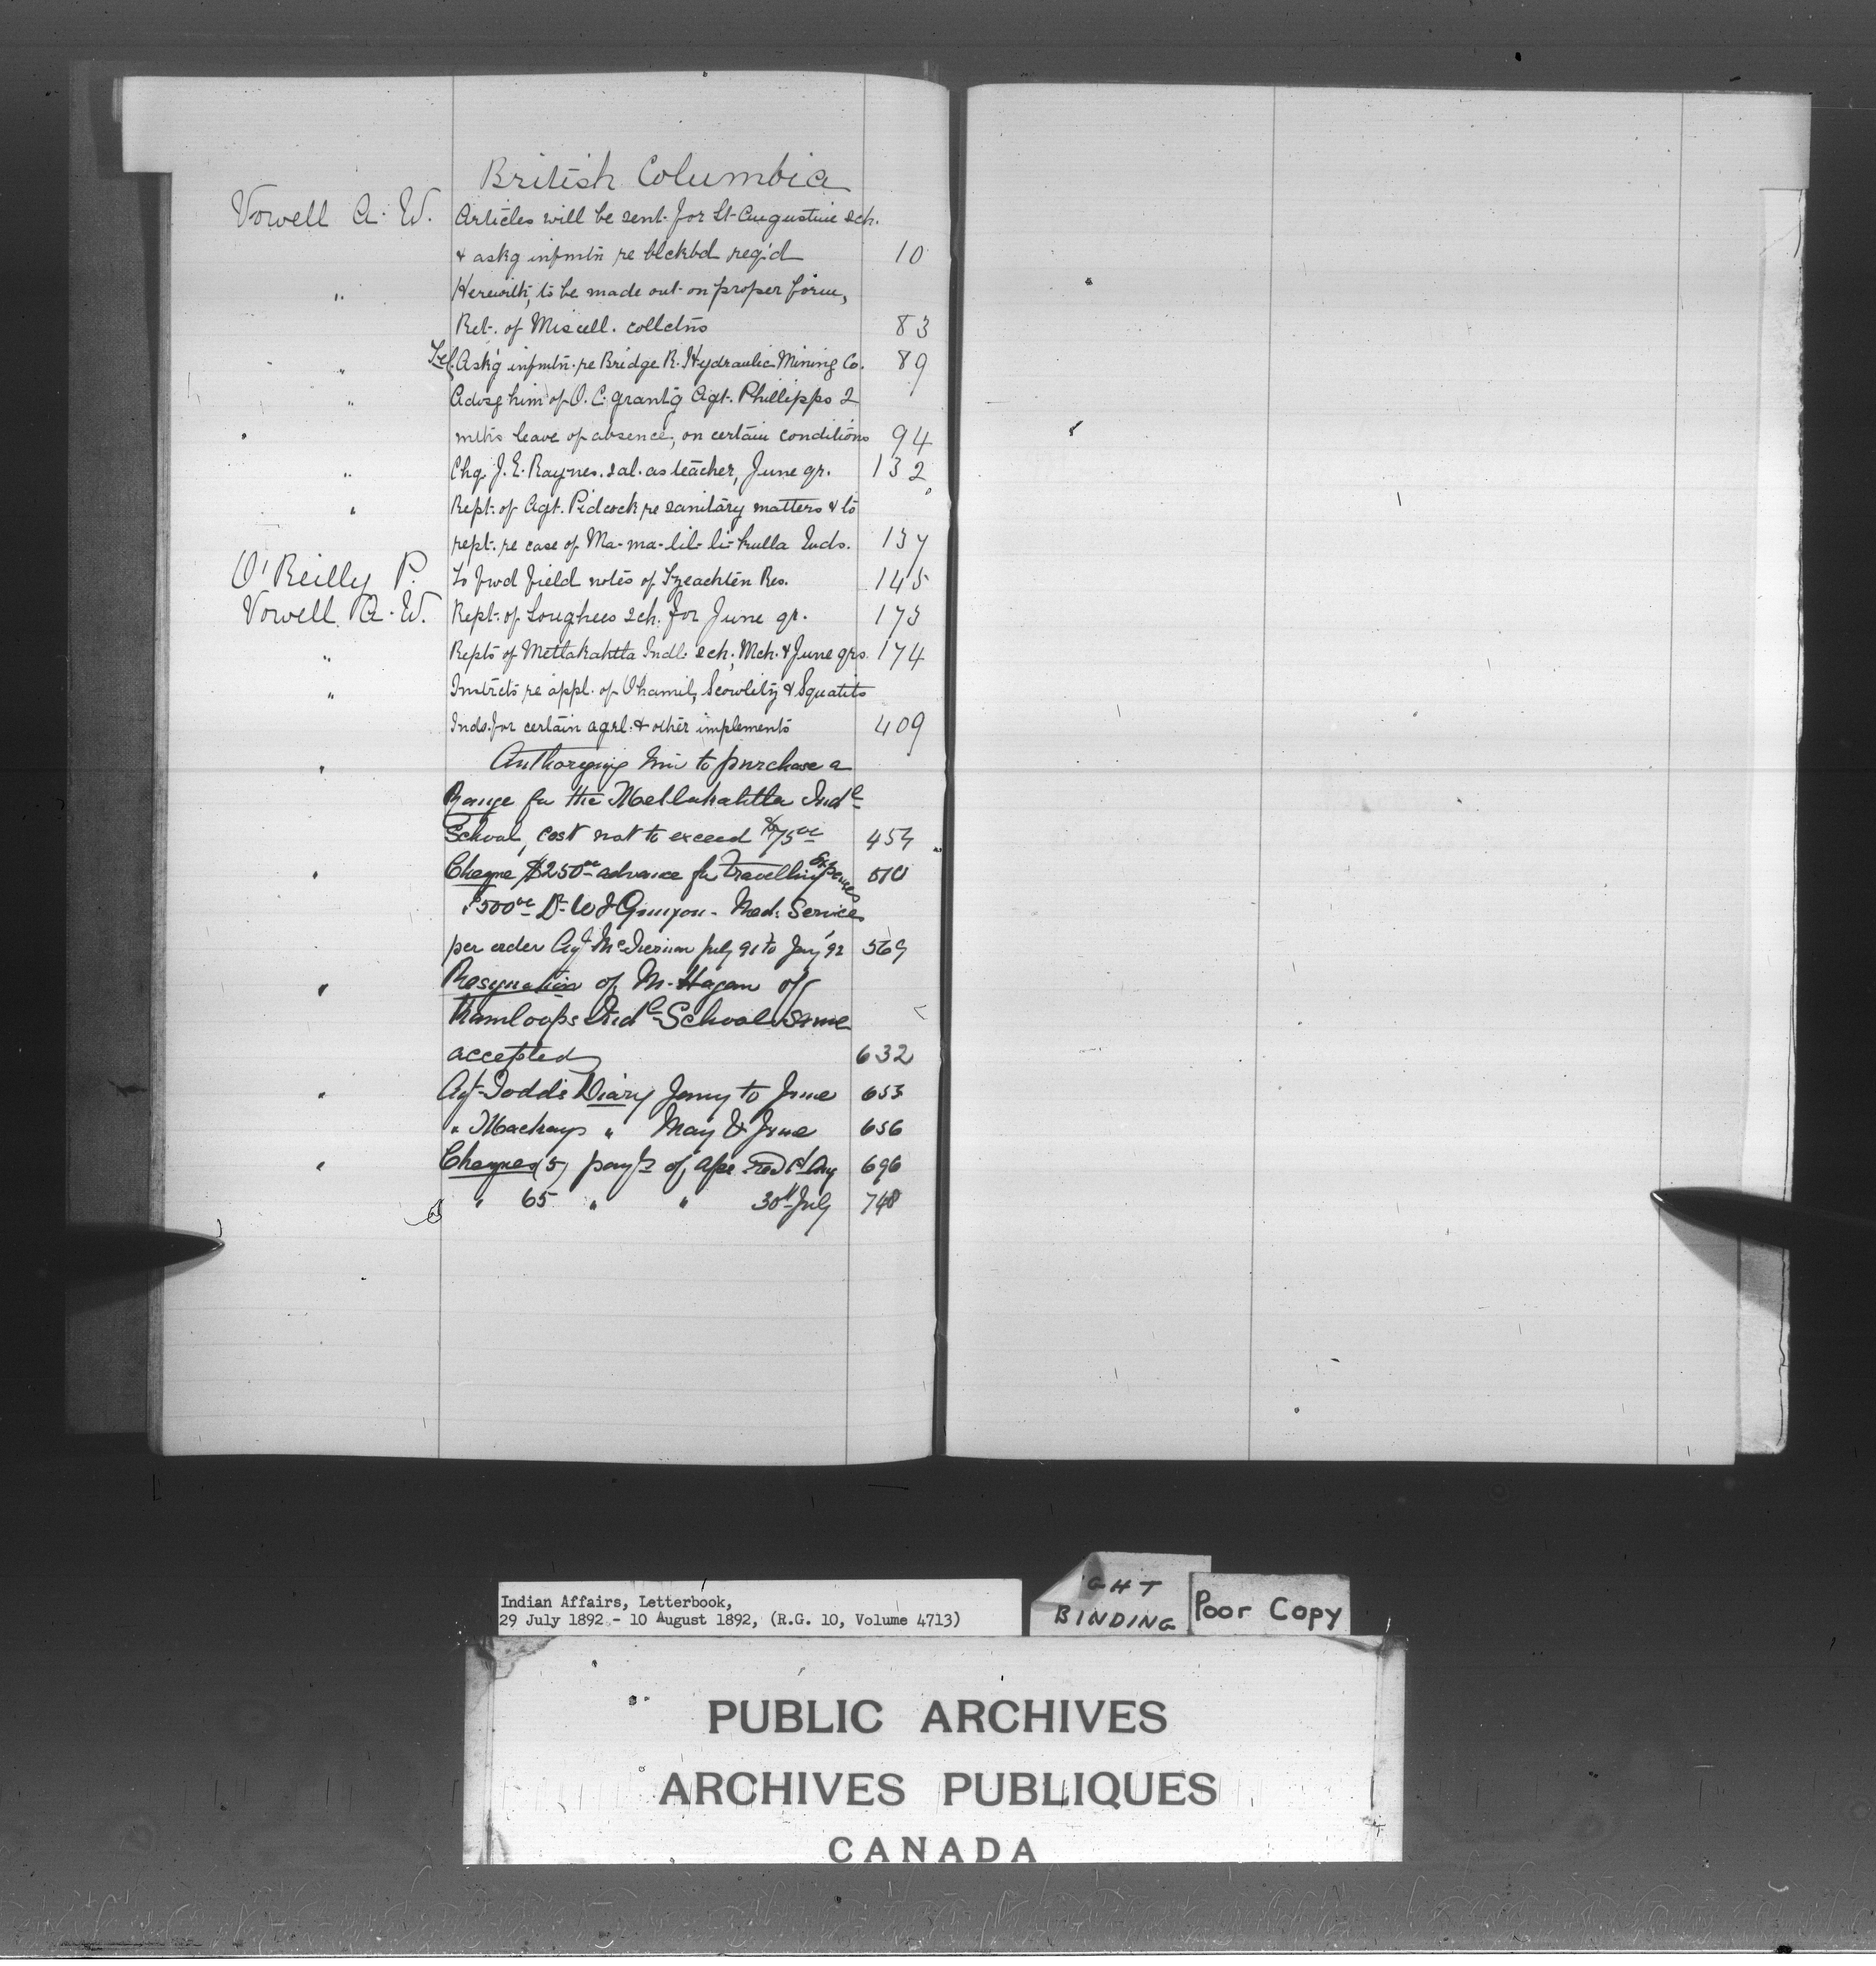 British Columbia
Vowell A. W. Articles will be sent for St. Augustine sch.
& askg infmtn re blckbd req'd 10
" Herewith, to be made out on proper form,
Ret. of Miscell. colletns 83
" Tel. Ask'g infmtn. re Bridge R. Hydraulic Mining Co. 89
" Advisg him of O. C. grantg Agt. Phillipps 2
mths leave of absence, on certain conditions 94
" Chq. J. E. Raynes. sal. as teacher, June qr. 132
" Rept. of Agt. Pidcock re sanitary matters & to
rept. re case of Ma-ma-lil-li-kulla Inds. 137
O'Reilly P. To fwd field notes of Tzeachten Res. 145
Vowell A. W. Rept. of Songhees sch. for June qr. 173
" Repts of Metlakahtla Indl. sch., Mch. & June qrs. 174
" Instrcts re appl. of Ohamil, Scowlitz & Squatits
Inds. for certain agrl. & other implements 409
" Authorizing him to purchase a
Range for the Metlakahtla Indl
School, cost not to exceed $75 00
" Cheque $250 00 advance for Travelling Expenses 510
$500 00 Dr W J Med. Services
per order Agt July 91 to Jany 92 569
" Resignation of M. Hagan of
Kamloops Indl School same
accepted 632
" Agt Todd's Diary Jany to June 653
" Mackays " May & June 656
" Cheques (5) payts of a/cs 1st Aug 696
" 65 " " 30th July 748
Indian Affairs, Letterbook,
29 July 1892 - 10 August 1892, (R.G. 10, Volume 4713)
GHT
BINDING
Poor Copy
PUBLIC ARCHIVES
ARCHIVES PUBLIQUES
CANADA